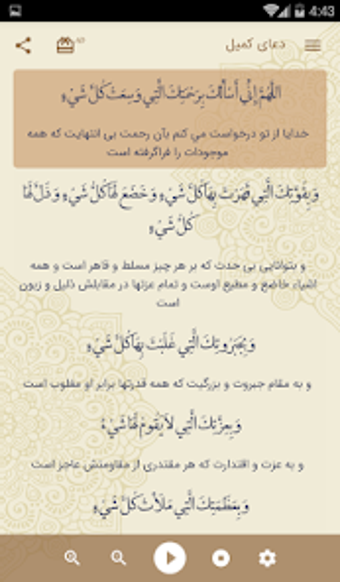 4:43
دعای کمیل
اللَّهُمَّ إِنِّي أَسْأَلُكَ بِرَحْمَتِكَ الَّتِي وَسِعَتْ كُلَّ شَيْءٍ
خدایا از تو درخواست می کنم بآن رحمت بی انتهایت که همه
موجودات را فراگرفته است
وَ بِقُوَّتِكَ الَّتِي قَهَرْتَ بِهَا كُلَّ شَيْءٍ وَ خَضَعَ لَهَا كُلُّ شَيْءٍ وَ ذَلَّ لَهَا
كُلُّ شَيْءٍ
و بتوانایی بی حدت که بر هر چیز مسلط و قاهر است و همه
اشیاء خاضع و مطیع اوست و تمام عزتها در مقابلش ذلیل و زبون
است
وَ بِجَبَرُوتِكَ الَّتِي غَلَبْتَ بِهَا كُلَّ شَيْءٍ
و به مقام جبروت و بزرگیت که همه قدرتها برابر او مغلوب است
وَ بِعِزَّتِكَ الَّتِي لاَ يَقُومُ لَهَا شَيْءٌ
و به عزت و اقتدارت که هر مقتدری از مقاومتش عاجز است
وَ بِعَظَمَتِكَ الَّتِي مَلَأَتْ كُلَّ شَيْءٍ